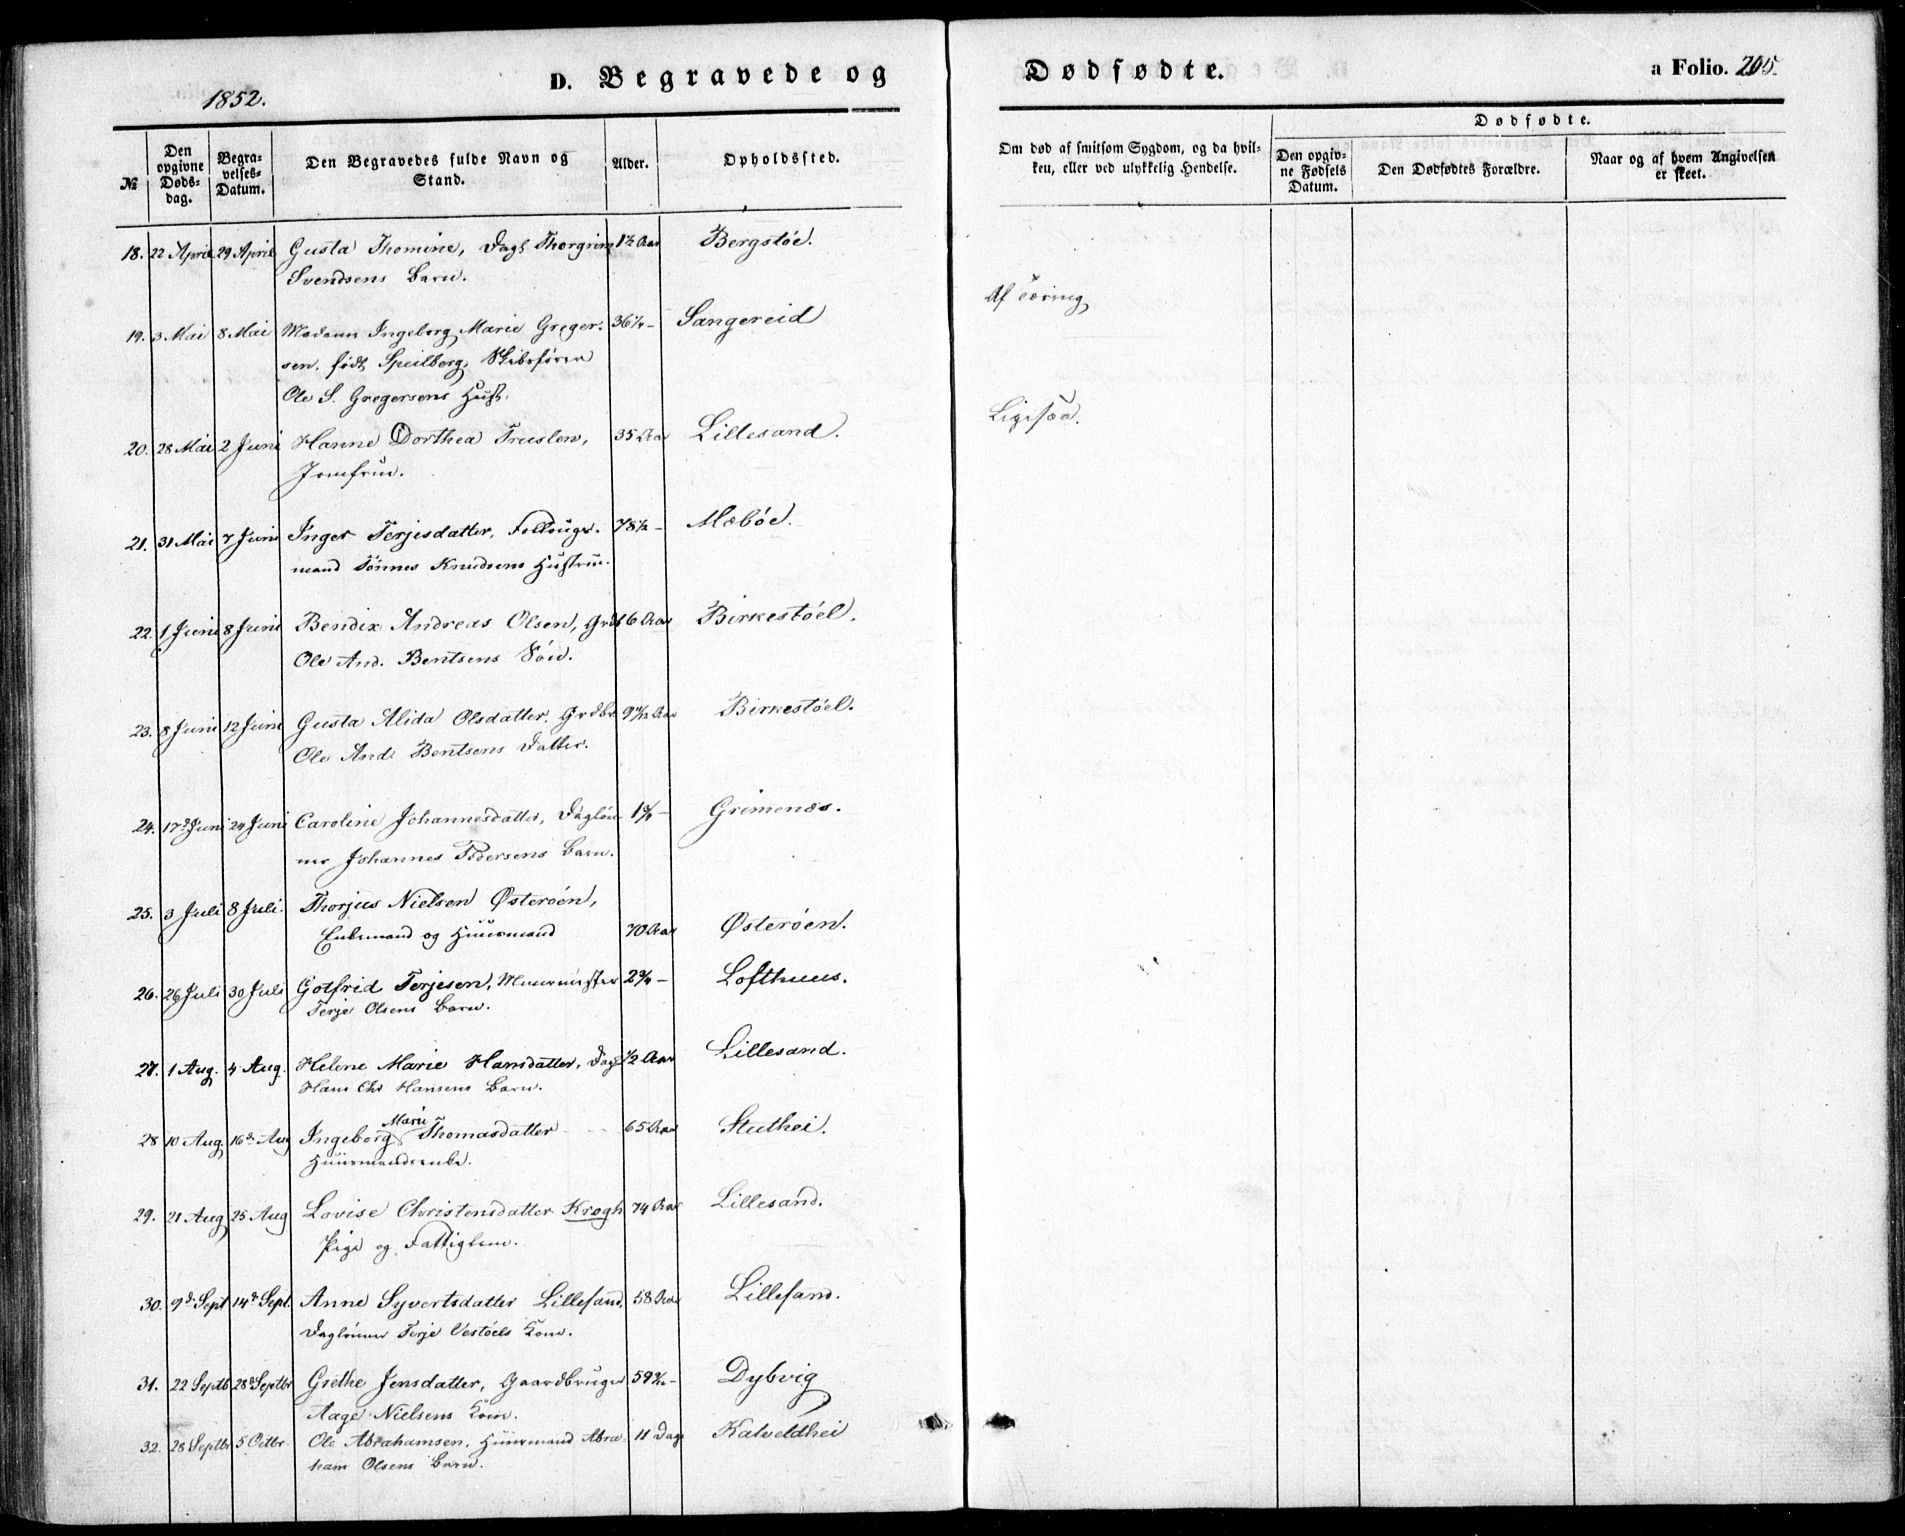 D. Begravede og
Dødfødte.
a Folio. 205.
1852.
№
Den opgivne Døds-dag.
Begra-velses-Datum.
Den Begravedes fulde Navn og Stand.
Alder.
Opholdssted.
Om død af smitsom Sygdom, og da hvil-ken, eller ved ulykkelig Hendelse.
Dødfødte.
Den opgiv-ne Fødsels Datum.
Den Dødfødtes Forældre.
Naar og af hvem Angivelsen er skeet.
18. 22 April 29 April Gusta Thomine, Dagl Thorgrim 1½ Aar Bergstøe.
Svendsens Barn.
19. 3 Mai 8 Mai Madam Ingeborg Marie Greger- 36 Sangereid Af Tæring
sen, født Speilberg, Skibsfører
Ole S. Gregersens Hust.
20. 28 Mai 2 Juni Hanne Dorthea Truslen, 35 Aar Lillesand. Ligesaa.
Jomfrue.
21. 31 Mai 7 Juni Inger Terjesdatter, 78½ - Mæbøe.
mand Tønnes Knudsens Hustrue.
22. 1 Juni 8 Juni Bendix Andreas Olsen, Grdb 6 Aar Birkestøel.
Ole And. Bentsens Søn.
23. 8 Juni 12 Juni Gusta Alida Olsdatter, Grdbr. 9 Aar Birkestøel.
Ole And. Bentsens Datter.
24. 17d Juni 24 Juni Caroline Johannesdatter, Dagløn- 1¾ - Grimenæs.
ner Johannes Pedersens Barn.
25. 3 Juli 8 Juli. Thorjus Nielsen Østerøen,
Enkemand og Huusmand 70 Aar Østerøen.
26. 26 Juli 30 Juli Gotfrid Terjesen, Muurmester 2¾ - Lofthuus.
Terje Olsens Barn.
27. 1 Aug. 4 Aug. Helene Marie Hansdatter, Dagl ½ Aar Lillesand.
Hans Chr Hansens Barn.
28 10 Aug 16d Aug Ingeborg Marie Thomasdatter 65 Aar Stuthei.
Huusmandsenke.
29. 21 Aug 25 Aug Lovise Christensdatter Krogh 74 Aar Lillesand.
Pige og Fattiglem.
30. 9d Sept 14d Sept. Anne Syvertsdatter Lillesand, 58 Aar Lillesand.
Daglønner Terje Vestøels Kone.
31. 22 Septb 28d Septbr Grethe Jensdatter, Gaardbruger 59 - Dybvig
Aage Nielsens Kone.
32. 28 Septbr 5 Octbr. Ole Abrahamsen, Huusmand Abra- 11 Dage Kalveldhei
ham Olsens Barn.